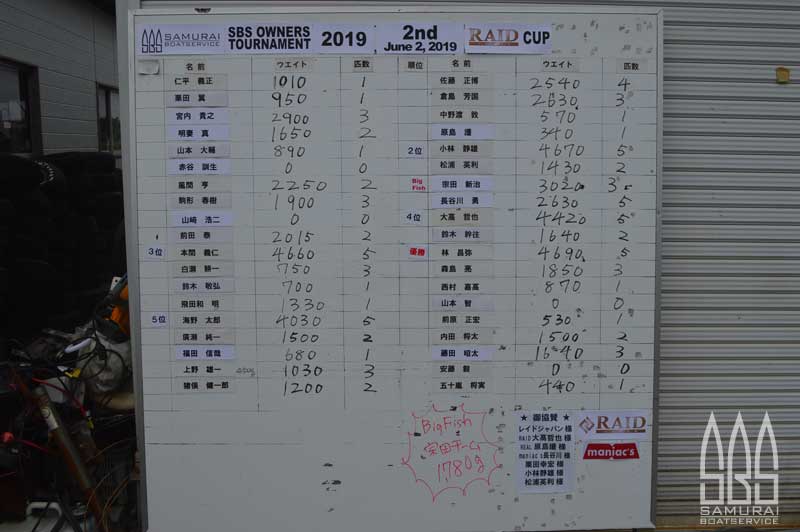 SAMURAI
BOATSERVICE
SBS OWNERS
TOURNAMENT
2019
2nd
June 2, 2019
RAID CUP
名前 ウエイト 匹数
仁平 義正 1010 1
栗田 翼 950 1
宮内 貴之 2900 3
明妻 真 1650 2
山本 大輔 890 1
赤谷 訓生 0 0
風間 亨 2250 2
駒形 春樹 1900 3
山崎 浩二 0 0
前田 泰 2015 2
3位 本間 義仁 4660 5
白瀬 耕一 750 3
鈴木 敬弘 700 1
飛田和 明 1330 1
5位 海野 太郎 4030 5
廣瀬 純一 1500 2
福田 信哉 680 1
上野 雄一 1030 3
猪俣 健一郎 1200 2
順位 名前 ウエイト 匹数
佐藤 正博 2540 4
倉島 芳国 2630 3
中野渡 敦 570 1
原島 優 340 1
2位 小林 静雄 4670 5
松浦 英利 1430 2
Big Fish 宗田 新治 3020 3
長谷川 勇 2630 5
4位 大高 哲也 4420 5
鈴木 幹往 1640 2
優勝 林 昌弥 4690 5
森島 亮 1850 3
西村 嘉高 870 1
山本 智 0 0
前原 正宏 530 1
内田 将太 1500 2
藤田 昭太 1640 3
安藤 毅 0 0
五十嵐 将実 440 1
Big Fish
宗田チーム
1780g
★ 御協賛 ★
レイドジャパン 様
RAID 大高哲也 様
REAL 原島優 様
MANIAC'S 長谷川 様
栗田幸宏 様
小林静雄 様
松浦英利 様
RAID
maniac's
SBS
SAMURAI
BOATSERVICE